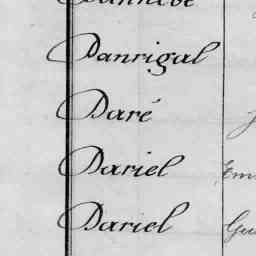 Danrigal
Daré
Dariel Em
Dariel Gu